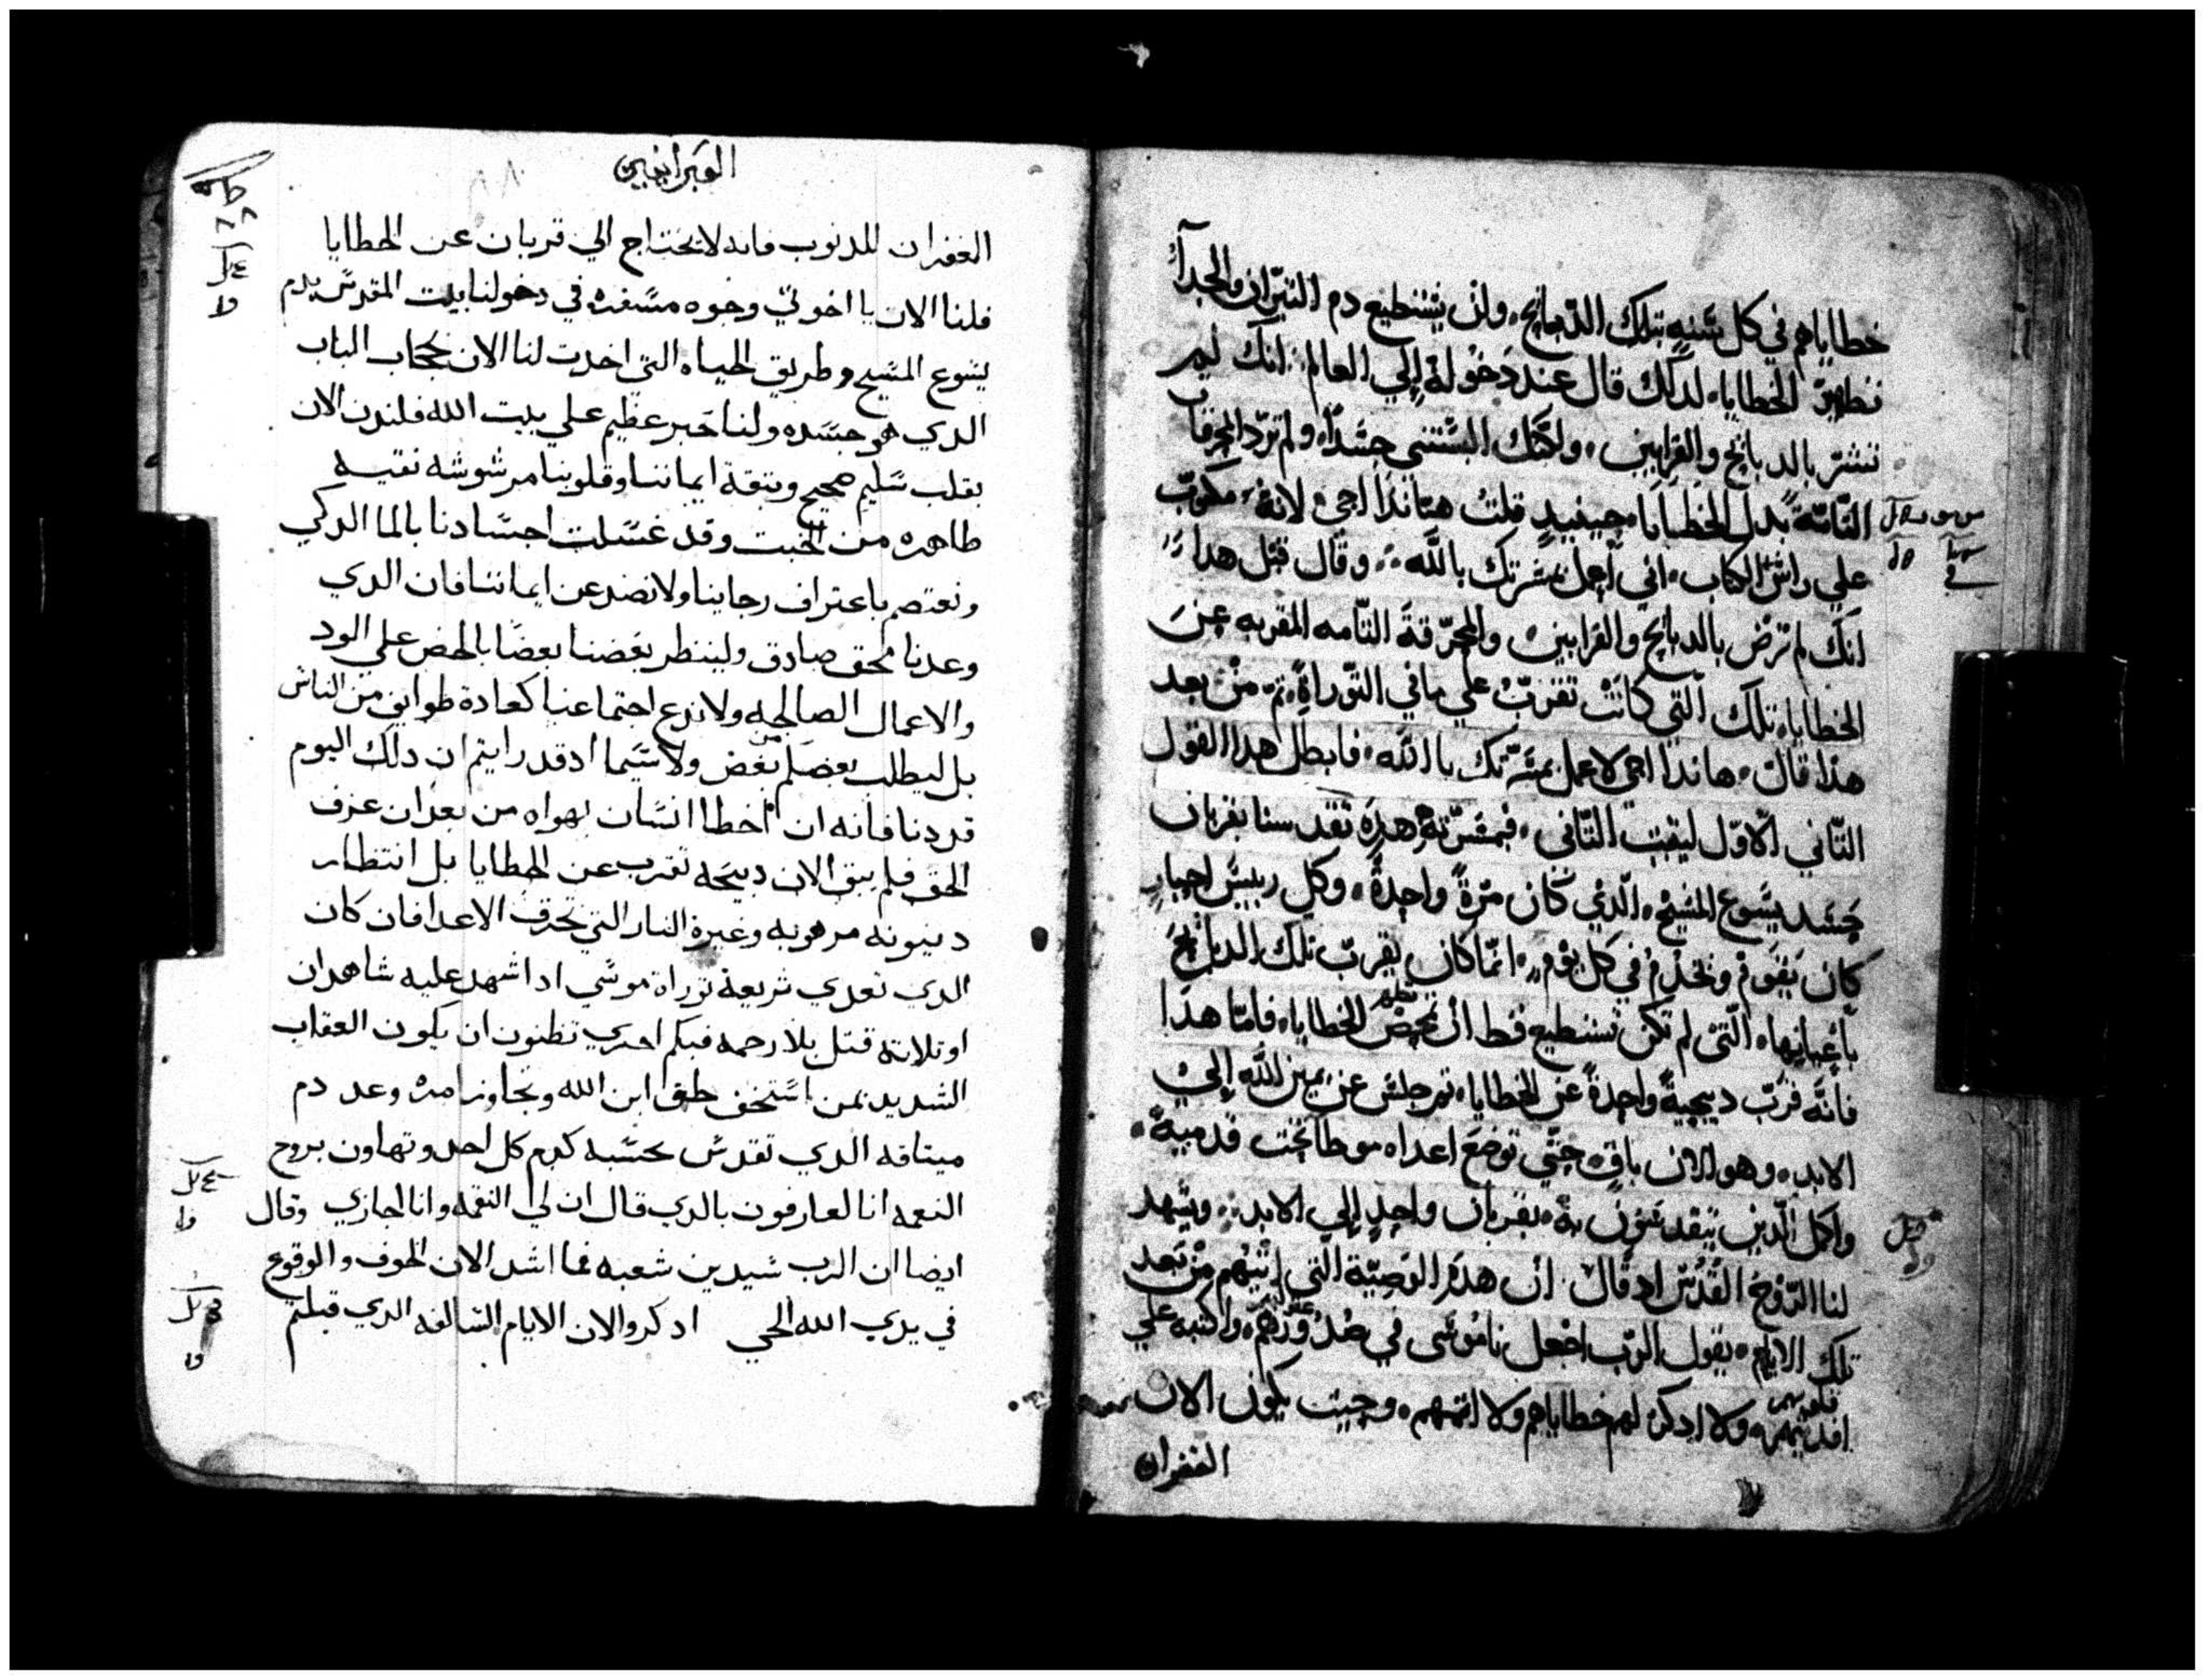 خطاياهم في كل سَنهٍ بتلك الدّبايح، ولن يَستطيع دم التيّران والجدآءُ
تطهيرَ الخطايا، لدلك قال عند دَخولهُ إلي العالم: انك لم
تسُرّ بالدبايح والقرابين، ولكنّك البسْتَني جسَداً، ولم تردّ المحرقات
التّامّة بدل الخطايا، حينيدٍ قلتُ هنا ندا اجي لانهُ مكتوبٌ
علي راسْ الكتاب، اني اعمل مسَرتك يا اللّه، وقال قبل هدا
انك لم ترضْ بالدبايح والقرابين، والمحرّقةَ التّامه المقربه عن
الخطايا، تلك الّتي كانَتْ تقرّبُ علي ما في التّوراةِ، تم من بعد
هدا قال، هاندا اجي لاعمل مسَرّتك يا اللّه، فابطل هدا القول
التّاني الاوّل ليتبت التّاني، فبمسَرّته هدِهَ تقدسنا بقربان
جَسَد يسَوع المسَيح، الّدي كان مرّةً واحِدةً، وكل رييسَ احبارٍ
كان يَقوم ونخدمُ في كل يوْم، انّما كان يقربّ تلك الدبايحَ
باعيانها، الّتي لم تكن تستطيع قط ان تمحِّضْ الخطايا، فامّا هدا
تطهر
فانّه قرّبَ دبيحةً واحِدةً عن الخطايا، تم جلسَ عن يمين اللّه إلي
الابد، وهو الان باقٍ، حتّي توضعَ اعداه موطا تحت قدميه،
واكمل الّدين يتقدسَوُن بهُ، بقربانٍ واحدٍ إلي الابد، ويَشهد
لنا الرّوحْ القُدسْ ادْ قالَ ان هدَه الوَصِيّة الّتي اوتيهم منْ بَعد
تلك الايام، يقول الرّب اجْعل نامُوسَي في صدُورهم، واكتبه علي
قلوبهم
افديتهم، ولا ادكر لهم خطاياهم ولا اتمهم، وحيت يكون الان
الغفران
العبرانيين
الغفران للدنوب فانه لا يحتاج الي قربان عن الخطايا
فلنا الان يا اخوتي وجوه مسَفره في دخولنا بيت المقدسَ بدم
يسَوع المسَيح وطريق الحياه التي اخدت لنا الان بحجاب الباب
الدي هو جسَده ولنا حَبر عظيم علي بيت الله فلندن الان
بقلب سَليم صحيح وبتقة ايماننا وقلوبنا مرشوشه نقيه
طاهره من الخبت وقد غسَلت اجسَادنا بالما الدكي
ونعتصم باعتراف رجاينا ولا نصد عن ايماننا فان الدي
وعدنا محق صادق ولينظر بعضنا بعضا بالحض علي الود
والاعمال الصالحه ولا ندع اجتماعنا كعادة طوايف من الناسَ
بل ليطلب بعضكم من بعض ولا سَيما اد قد رايتم ان دلك اليوم
قد دنا فانه ان اخطا انسَان بهواه من بعد ان عرف
الحق فلم يبق الان دبيحَه تقرب عن الخطايا بل انتظار
دينونه مرهوبه وغيرة النار التي تحرق الاعدا فان كان
الدي تعدي شريعة توراة موسَي ادا شهد عليه شاهدان
او تلاتة قتل بلا رحمه فبكم احري تظنون ان يكون العقاب
الشديد بمن استخف بحق ابن الله وتجاوز امره وعد دم
ميتاقه الدي تقدسَ بحسَبه كدم كل احد وتهاون بروح
النعمه انا لعارفون بالدي قال ان لي النقمه وانا اجازي وقال
ايضا ان الرب سَيدين شعبه فما اشد الان الخوف والوقوع
في يدي الله الحي ادكروا الان الايام السَالفه الدي قبلتم